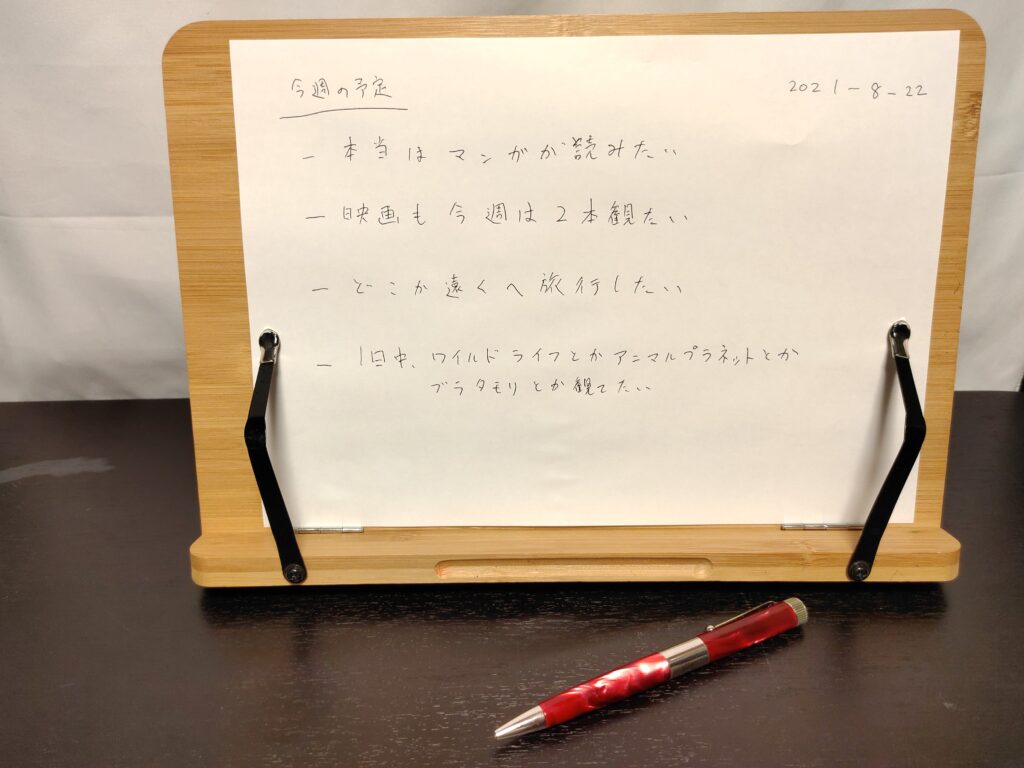 今週の予定
2021-8-22
- 本当はマンガが読みたい
- 映画も今週は2本観たい
- どこか遠くへ旅行したい
- 1日中、ワイルドライフとかアニマルプラネットとか
ブラタモリとか観てたい